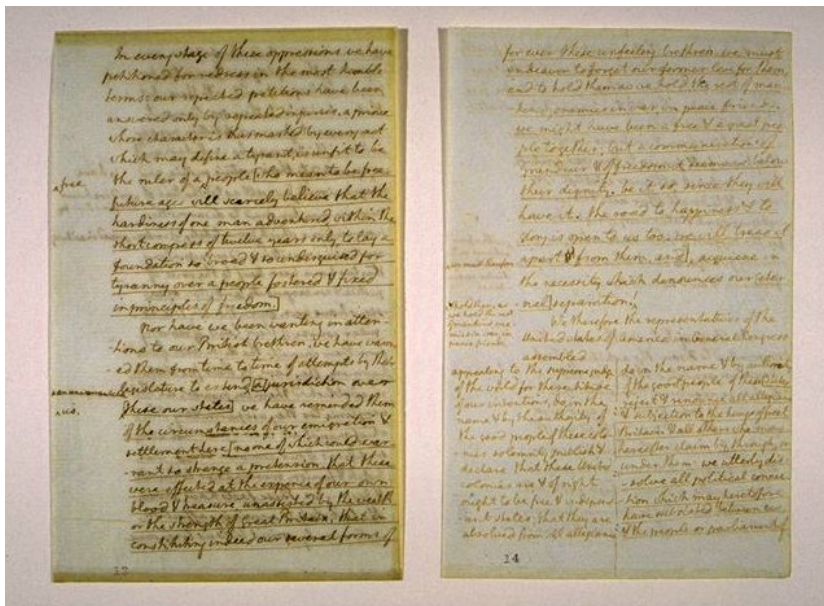 In every stage of these oppressions we have
petitioned for redress in the most humble
terms: our repeated petitions have been
answered only by repeated injuries. a prince
whose character is thus marked by every act
which may define a tyrant, is unfit to be
a free
the ruler of a people [who mean to be free.
future ages will scarcely believe that the
hardiness of one man adventured within the
short compass of twelve years only, to lay a
foundation so broad & so undisguised for
tyranny over a people fostered & fixed
in principles of freedom.]
Nor have we been wanting in atten-
tions to our British brethren. we have warn-
ed them from time to time of attempts by their
legislature to extend [a] jurisdiction over
us.
[these our states] we have reminded them
of the circumstances of our emigration &
settlement here [no one of which could war-
rant so strange a pretension: that these
were effected at the expence of our own
blood & treasure, unassisted by the wealth
or the strength of Great Britain: that in
constituting indeed our several forms of
13
for ever these unfeeling brethren. we must
endeavor to forget our former love for them,
and to hold them as we hold the rest of man-
kind, enemies in war, in peace friends.
we might have been a free & a great peo-
ple together; but a communication of
grandeur & of freedom it seems is below
their dignity. be it so, since they will
have it. the road to happiness & to
glory is open to us too. we will tread it
we must therefore
apart from them, and] acquiesce in
the necessity which denounces our [eter-
& hold them, as
we hold the rest
of mankind, ene-
mies in war, in
peace friends.
-nal] separation!
We therefore the representatives of the
United states of America in General Congress
assembled
appealing to the supreme judge
of the world for the rectitude
of our intentions, do in the
name & by the authority of
the good people of these colo-
nies solemnly publish &
declare that these United
colonies are & of right
ought to be free & independ-
ant states; that they are
absolved from all allegiance
do in the name & by authority
of the good people of these [states
reject & renounce all allegiance
& subjection to the kings of Great
Britain & all others who may
hereafter claim by, through, or
under them: we utterly dis-
-solve all political connec-
tion which may heretofore
have subsisted between us
& the people or parliament of
14